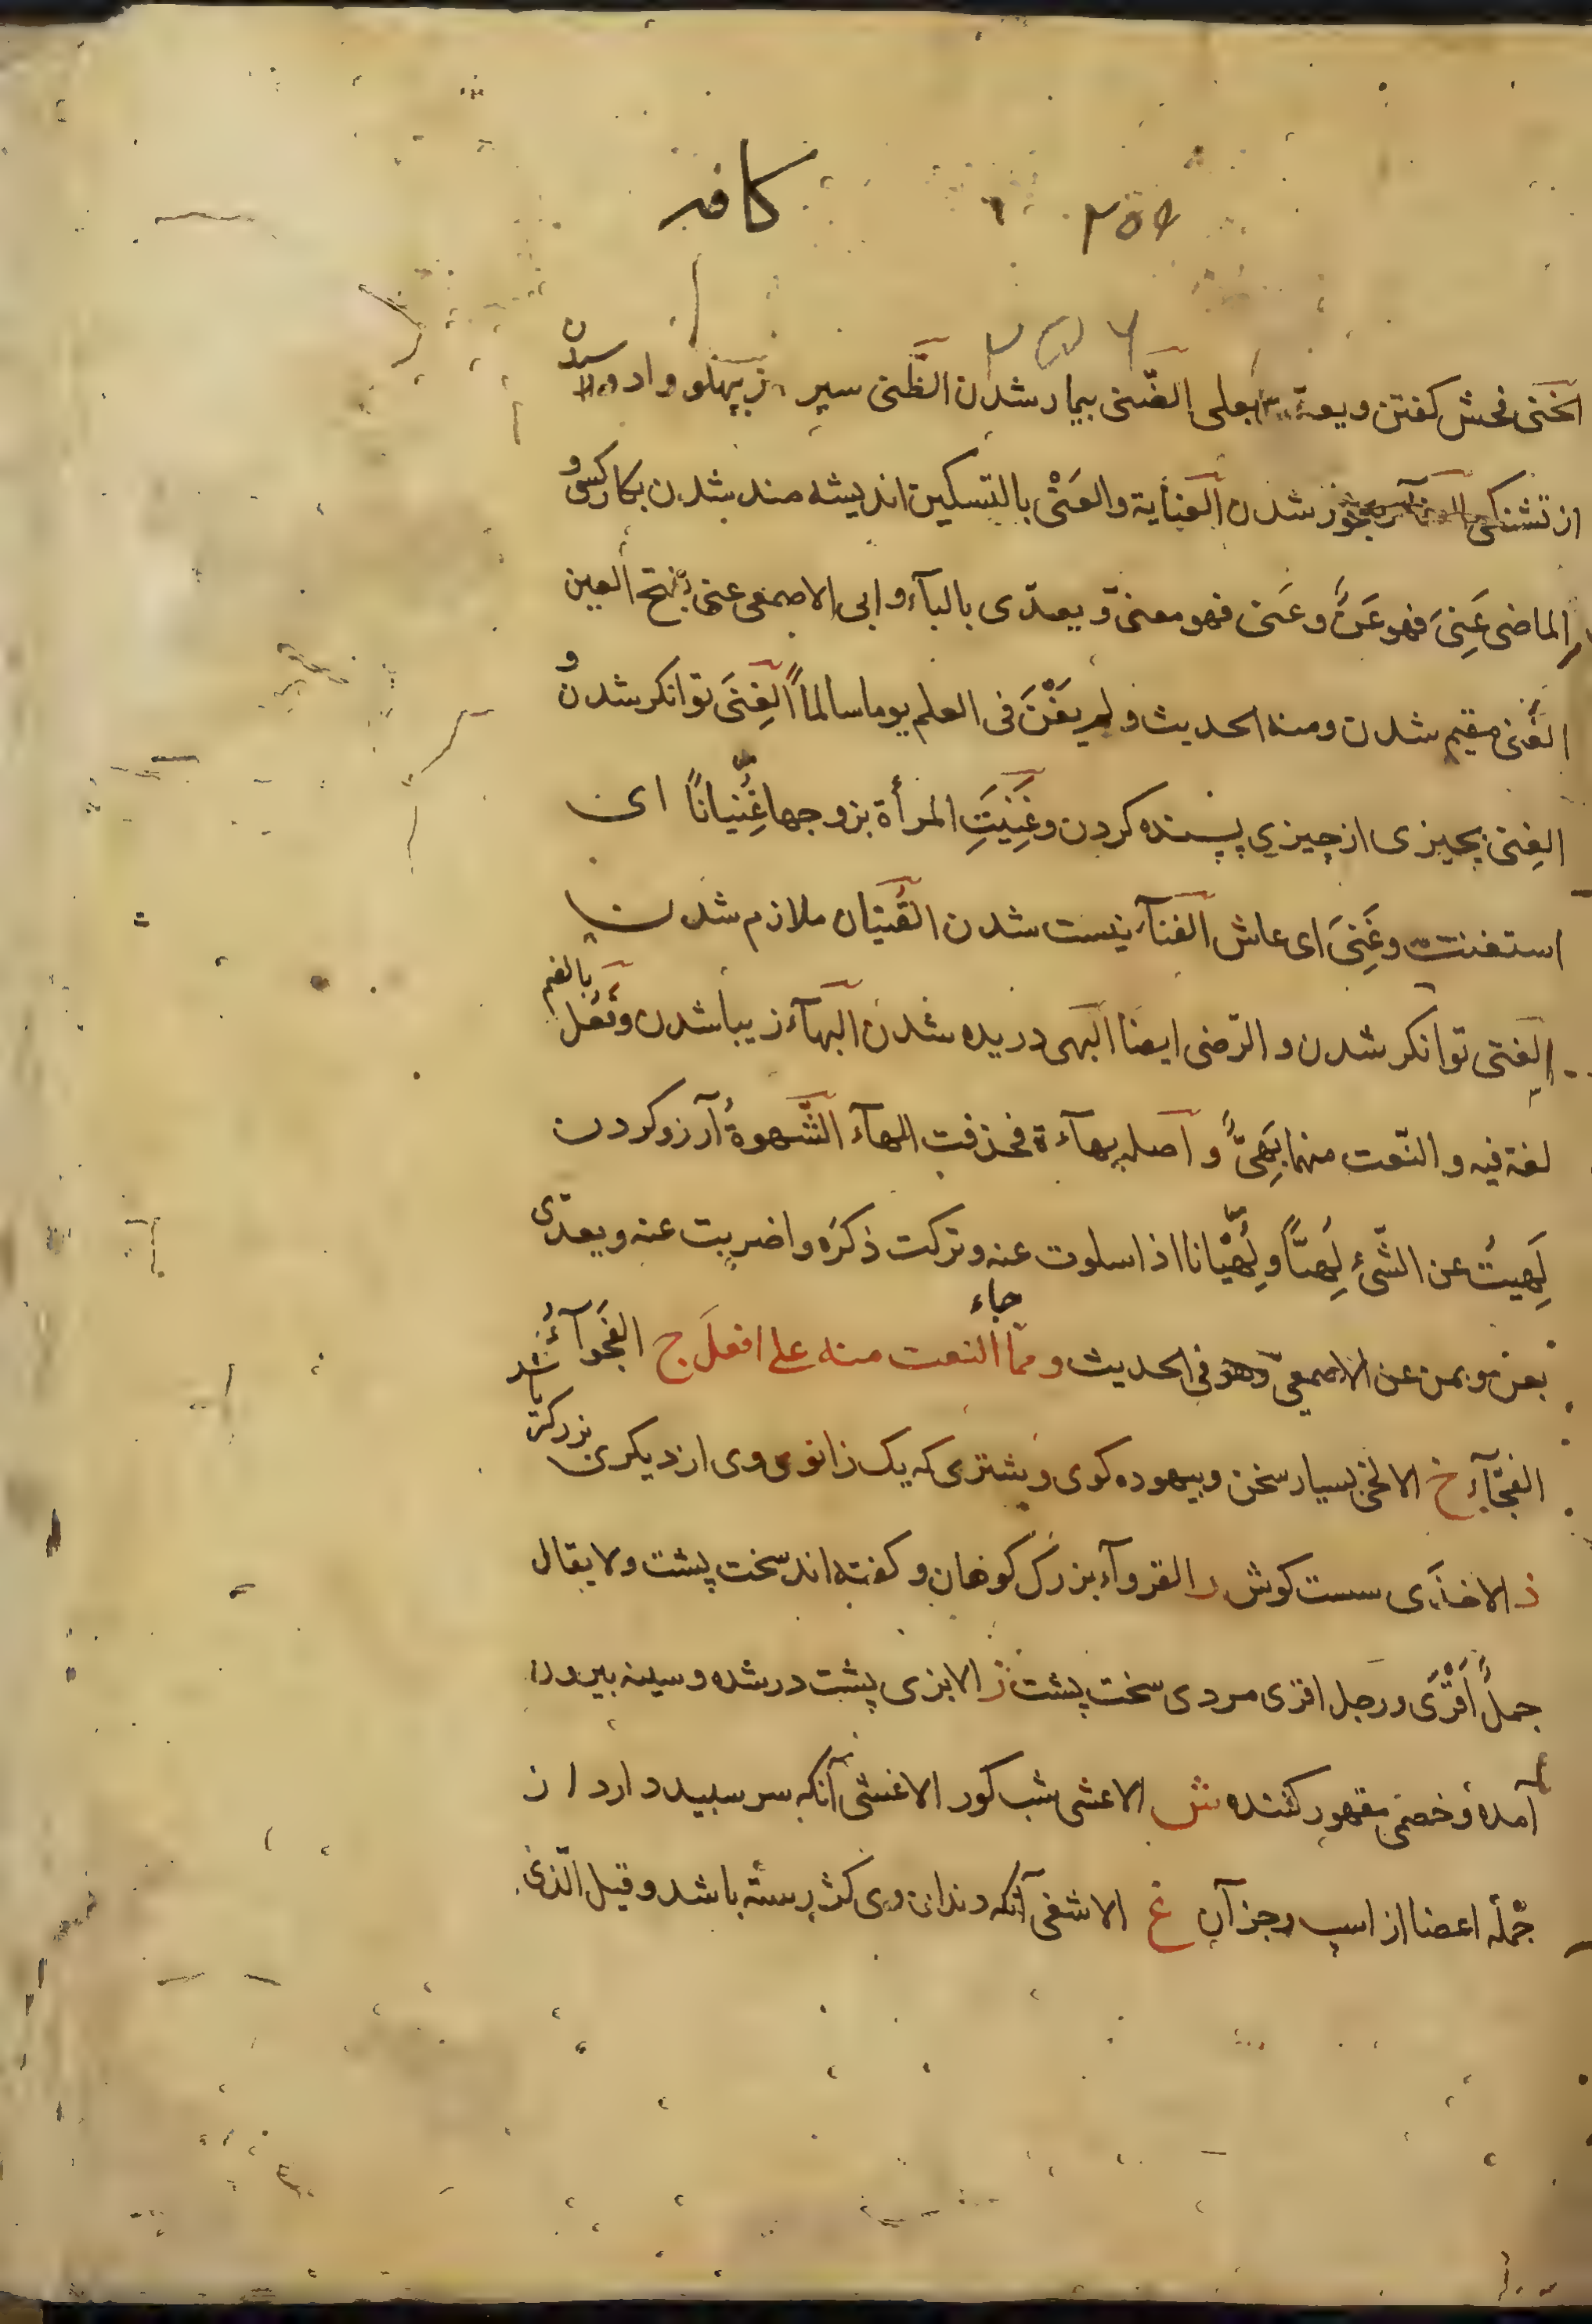 كافر
۲۵۶
۲۵۶
الخنى فحش كفتن ويعدّى بعلى الضّنى بيمار شدن الظّنى سپرز بپهلو وادوسيدن
از تشنكى رنجور شدن العناية والعَنْى بالتسكين انديشه مند شدن بكار كسى و
الماضى عَنِىَ فهو عَنٍ وعَنى فهو معنىّ ويعدّى بالبآء وابى الاصمعى عنى بفتح العين
الغَنى مقيم شدن ومنه الحديث ولم يَغْنَ فى العلم يوما سالماً الغِنَى توانكر شدن و
الغِنى بچيزى از چيزي پسنده كردن وغَنِيَتِ المرأة بزوجها غُنِّيانًا اى
استغنت وغَنِىَ اى عاش الفنآء نيست شدن القُنيان ملازم شدن
الغنى توانكر شدن والرّضى ايضا البهى دريده شدن البهآء زيبا شدن وفَعُل بالضم
لغة فيه والنّعت منهما بَهِىٌّ واصله بهآءة فحذفت الهآء الشّهوةُ آرزو كردن
لَهِيتُ عن الشّئِ لُهِيًّا ولُهْيَانا اذا سلوت عنه وتركت ذكرَه واضربت عنه ويعدّى
بعن وبمن عن الاصمعى وهو فى الحديث ومّما جاء النعت منه على افعلَ ج الفَجْوآءُ
الفجّآء خ الالخى بسيار سخن وبيهوده كوى وشترى كه يك زانوى وى از ديكرى بزركتر باشد
ذ الاخذَى سست كوش ر القروآء بزرك كوهان وكفته اند سخت پشت ولا يقال
جملٌ اَقْرَى ورجل اقرى مردى سخت پشت ز الابزى پشت در شده وسينه بيرون
آمده وخصمى مقهور كننده ش الاعشى شب كور الاغشى آنكه سر سپيد دارد از
جُملهٔ اعضا از اسپ وجز آن غ الاشغى آنكه دندان وى كژ رسته باشد وقيل الّذى